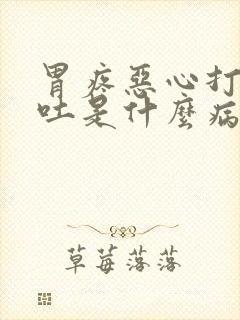 胃疼惡心打
吐是什麼病
草莓落落